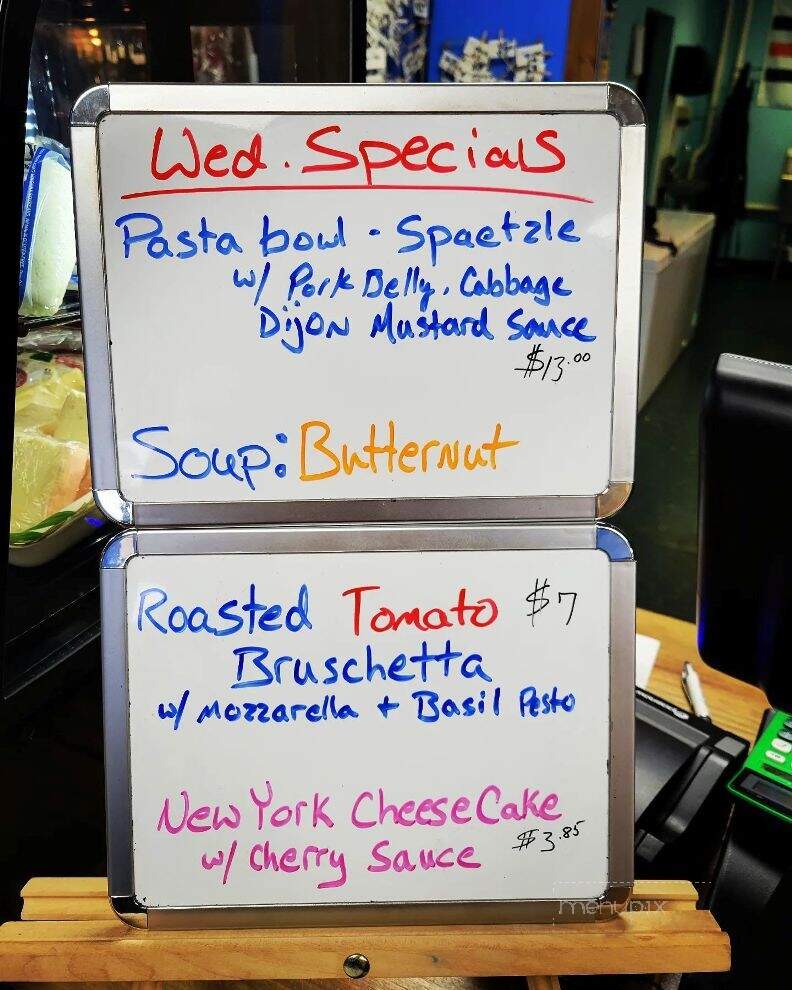 Wed. Specials
Pasta bowl - Spaetzle
w/ Pork Belly, Cabbage
Dijon Mustard Sauce
$13.00
Soup: Butternut
Roasted Tomato $7
Bruschetta
w/ Mozzarella + Basil Pesto
New York CheeseCake
w/ Cherry Sauce $3.85
menupix